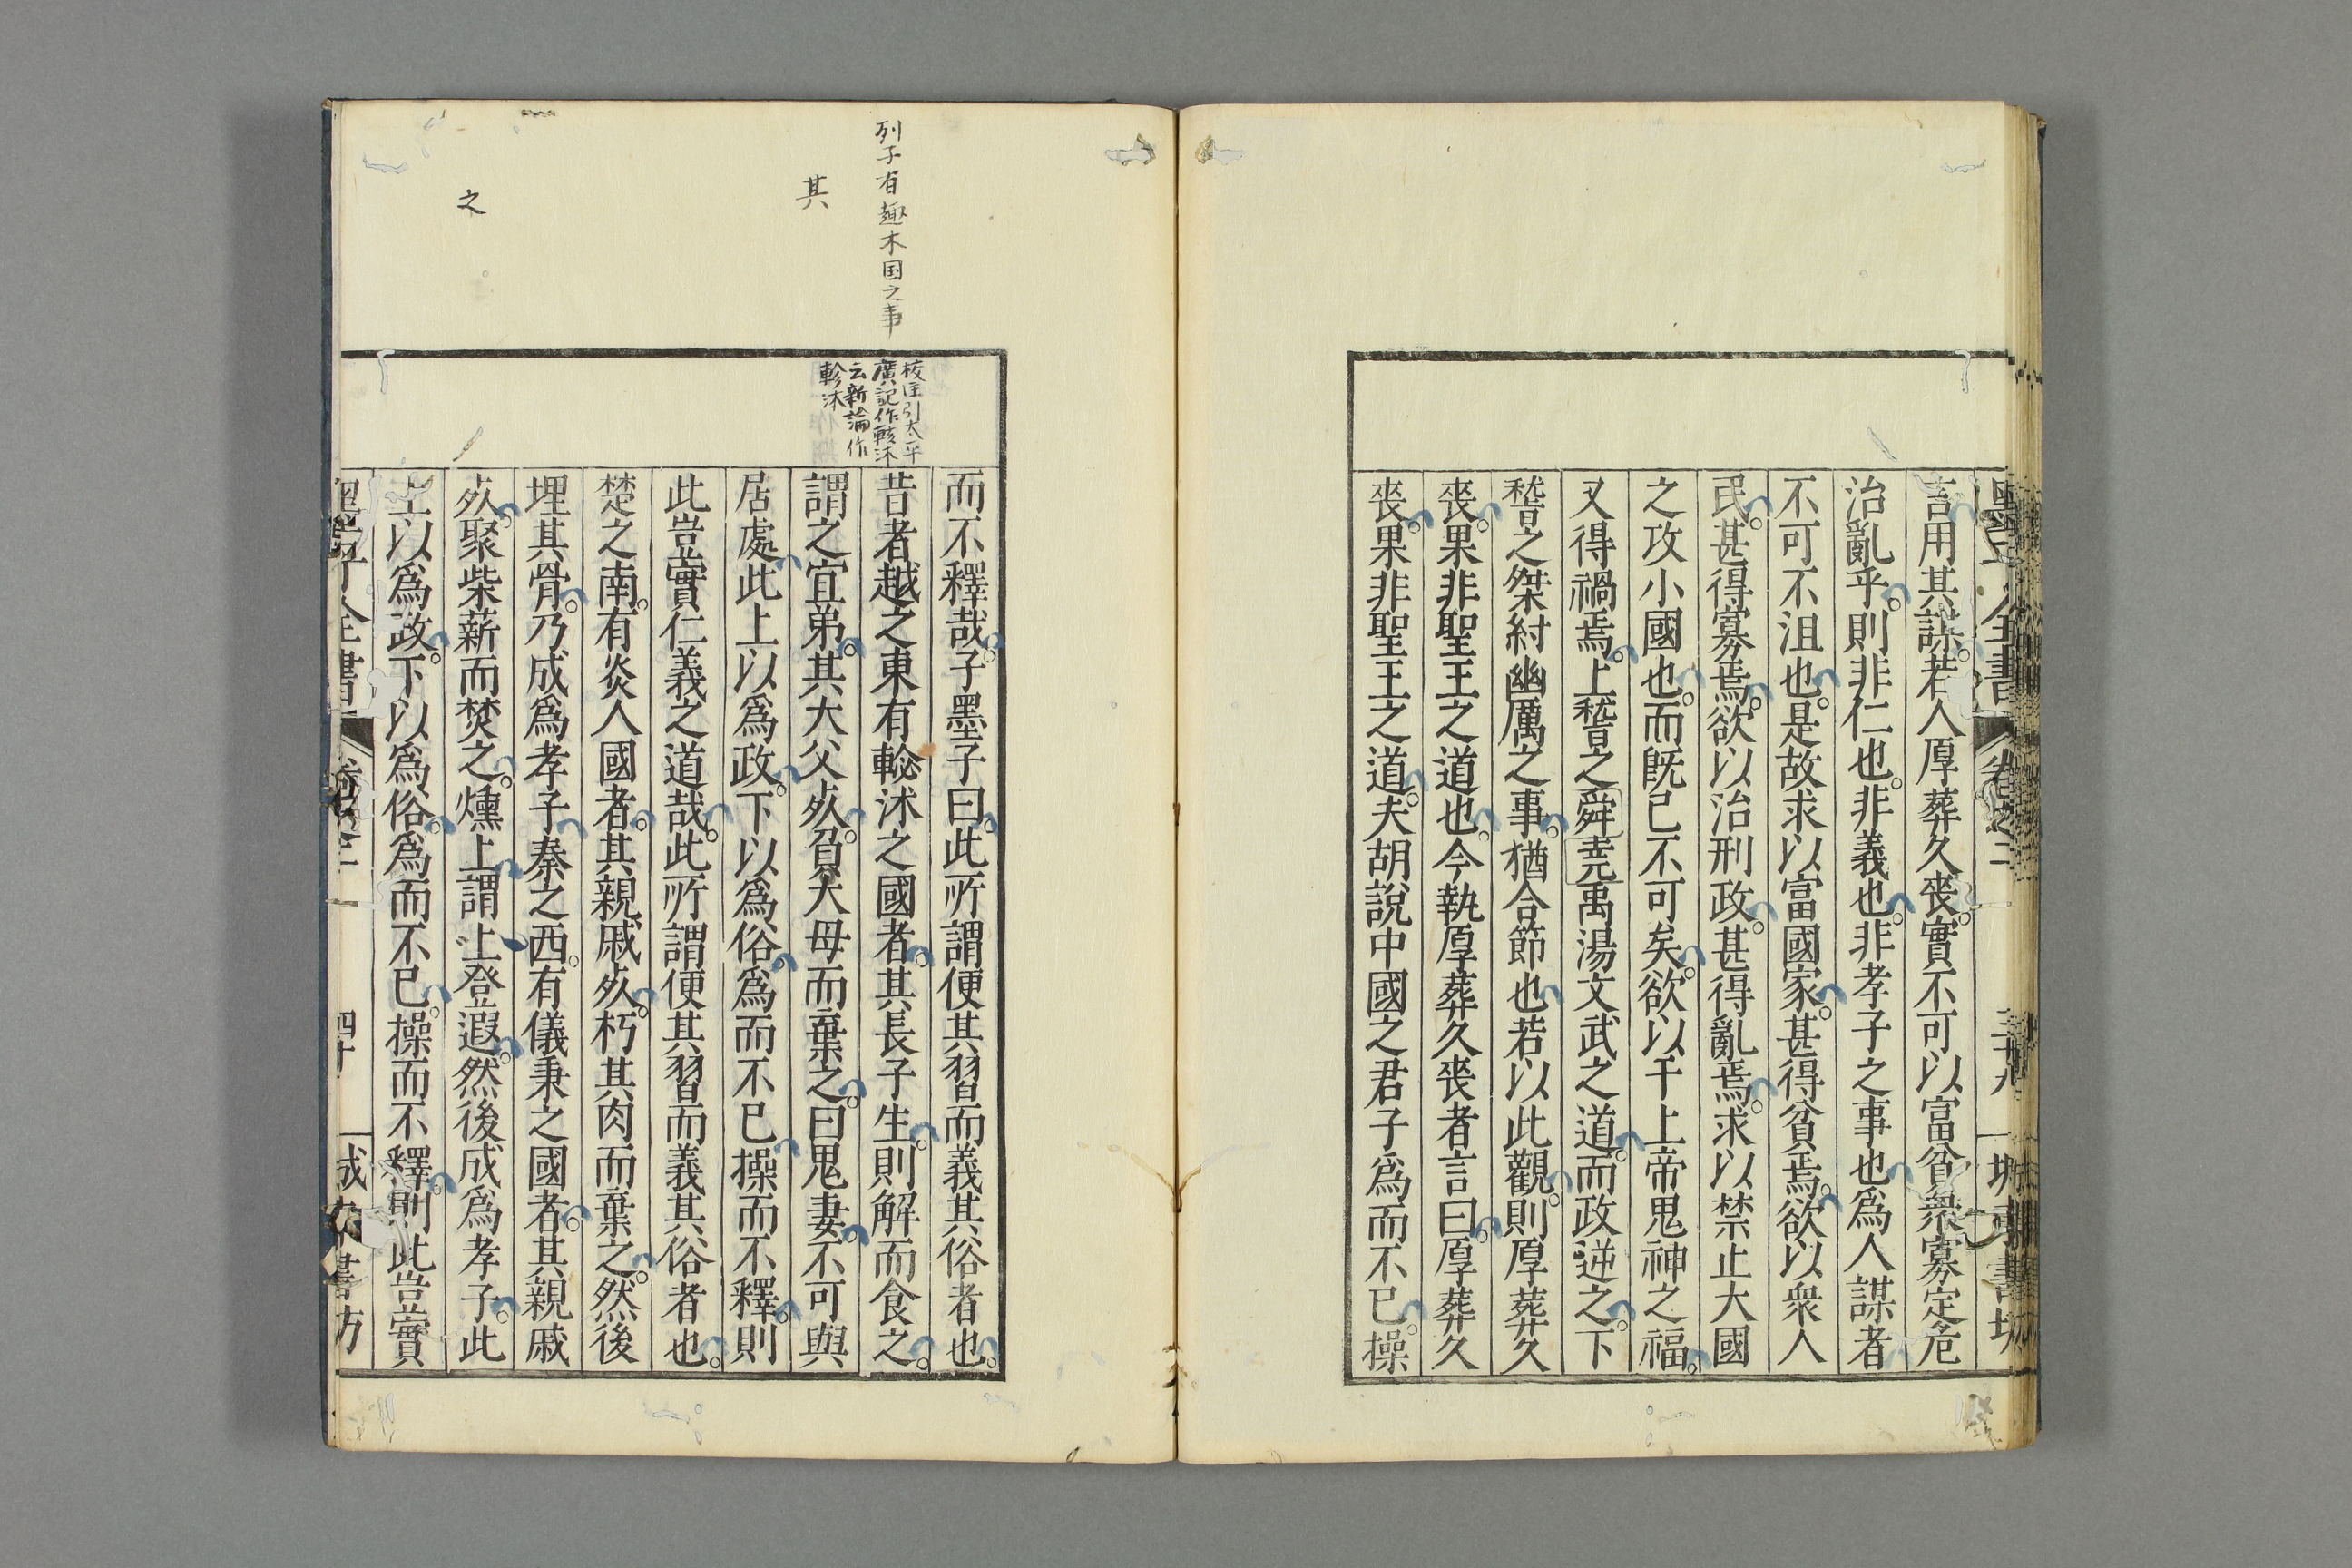 言用其謀若人厚葬久喪實不可以富貧衆寡定危
治亂乎則非仁也非義也非孝子之事也爲人謀者
不可不沮也是故求以富國家甚得貧焉欲以衆人
民甚得寡焉欲以治刑政甚得亂焉求以禁止大國
之攻小國也而旣已不可矣欲以干上帝鬼神之福
又得禍焉上稽之舜堯禹湯文武之道而政逆之下
稽之桀紂幽厲之事猶合節也若以此觀則厚葬久
喪果非聖王之道也今執厚葬久喪者言曰厚葬久
喪果非聖王之道夫胡說中國之君子爲而不已操
列子有趣木国之事
其
之
校注引太平
廣記作軫沐
云新論作
軫沐
而不釋哉子墨子曰此所謂便其習而義其俗者也
昔者越之東有輆沐之國者其長子生則解而食之
謂之宜弟其大父死負其大母而棄之曰鬼妻不可與
居處此上以爲政下以爲俗爲而不已操而不釋則
此豈實仁義之道哉此所謂便其習而義其俗者也
楚之南有炎人國者其親戚死朽其肉而棄之然後
埋其骨乃成爲孝子秦之西有儀秉之國者其親戚
死聚柴薪而焚之燻上謂上登遐然後成爲孝子此
上以爲政下以爲俗爲而不已操而不釋則此豈實